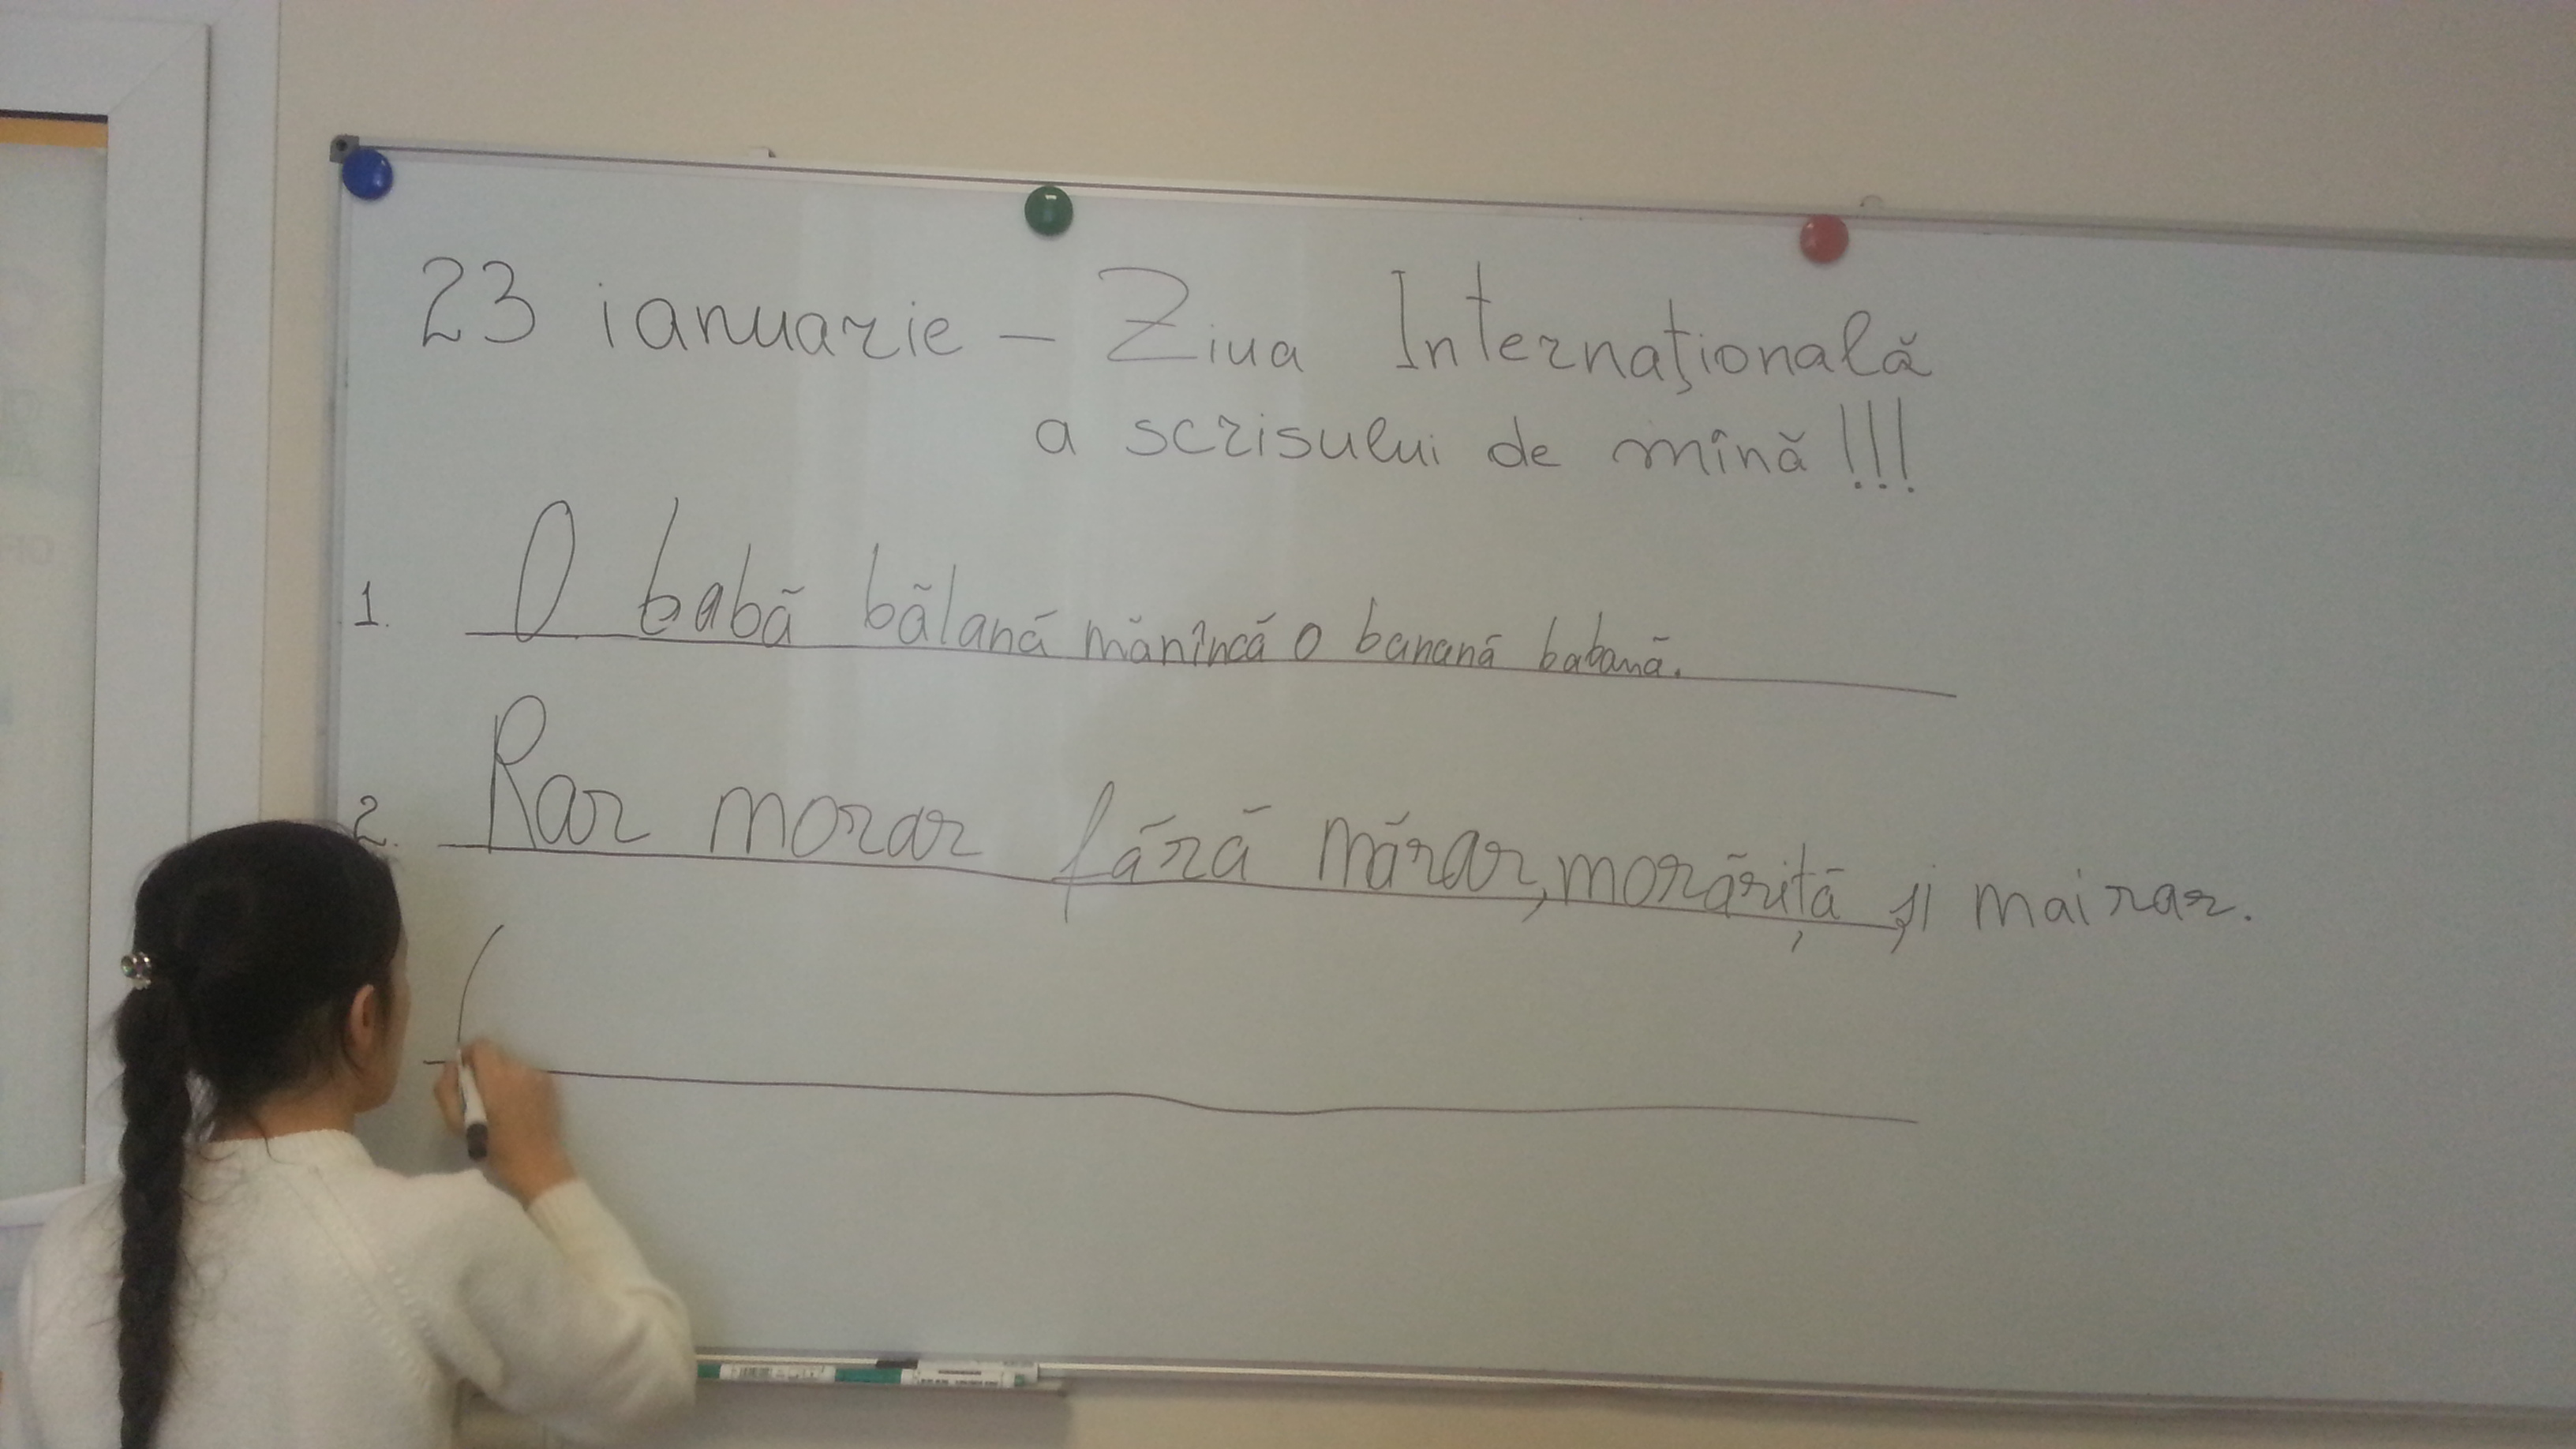 23 ianuarie - Ziua Internațională
a scrisului de mînă!!!
1. O babă bălană mănîncă o banană babană.
2. Rar morar fără mărar, morăriță și mai rar.